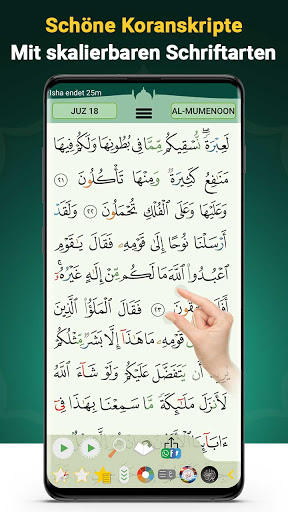 Schöne Koranskripte
Mit skalierbaren Schriftarten
Isha endet 25m
JUZ 18
AL-MUMENOON
لَعِبْرَةً نُّسْقِيكُم مِّمَّا فِى بُطُونِهَا وَلَكُمْ فِيهَا
مَنَٰفِعُ كَثِيرَةٌ وَمِنْهَا تَأْكُلُونَ ٢١
وَعَلَيْهَا وَعَلَى ٱلْفُلْكِ تُحْمَلُونَ ٢٢ وَلَقَدْ
أَرْسَلْنَا نُوحًا إِلَىٰ قَوْمِهِۦ فَقَالَ يَٰقَوْمِ
ٱعْبُدُوا۟ ٱللَّهَ مَا لَكُم مِّنْ إِلَٰهٍ غَيْرُهُۥٓ
أَفَلَا تَتَّقُونَ ٢٣ فَقَالَ ٱلْمَلَؤُا۟ ٱلَّذِينَ
مِن قَوْمِهِۦ مَا هَٰذَآ إِلَّا بَشَرٌ مِّثْلُكُمْ
أَن يَتَفَضَّلَ عَلَيْكُمْ وَلَوْ شَآءَ ٱللَّهُ
لَأَنزَلَ مَلَٰٓئِكَةً مَّا سَمِعْنَا بِهَٰذَا فِىٓ
ءَابَآئِنَا